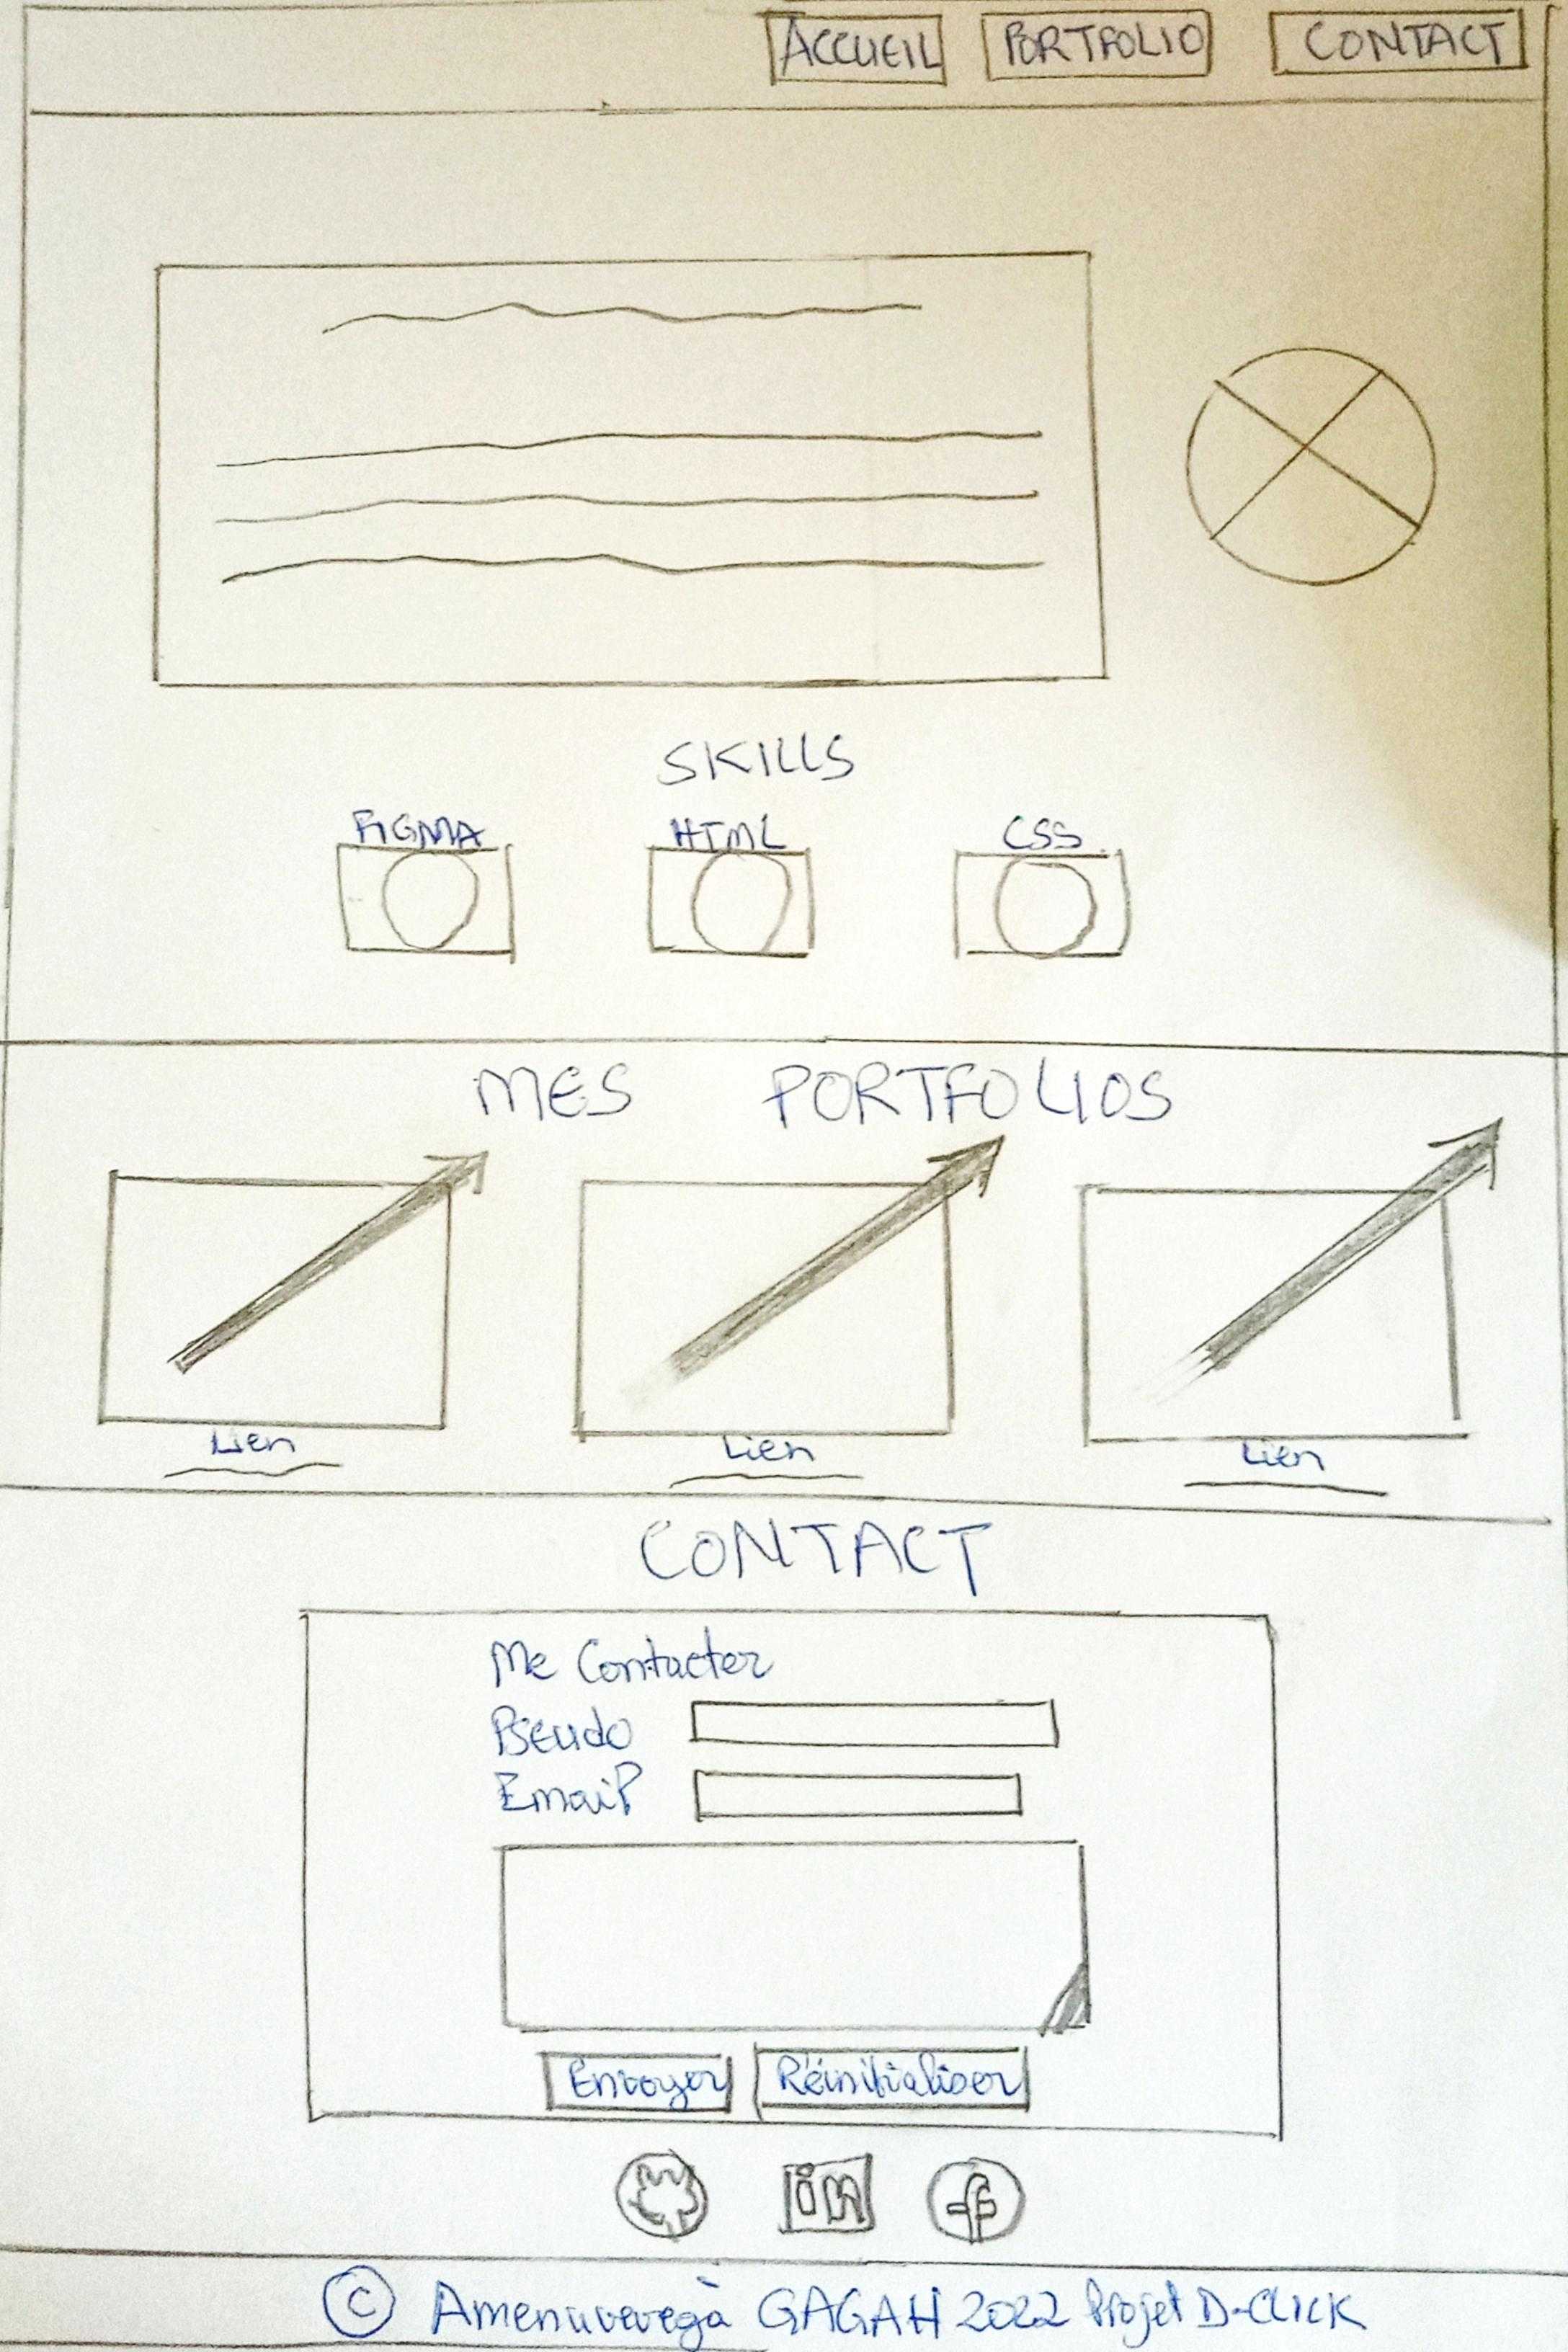 ACCUEIL PORTFOLIO CONTACT
SKILLS
FIGMA HTML CSS
MES PORTFOLIOS
Lien Lien Lien
CONTACT
Me Contacter
Pseudo
Email
Envoyer Réinitialiser
in f
© Amenuvevegà GAGAH 2022 Projet D-CLICK